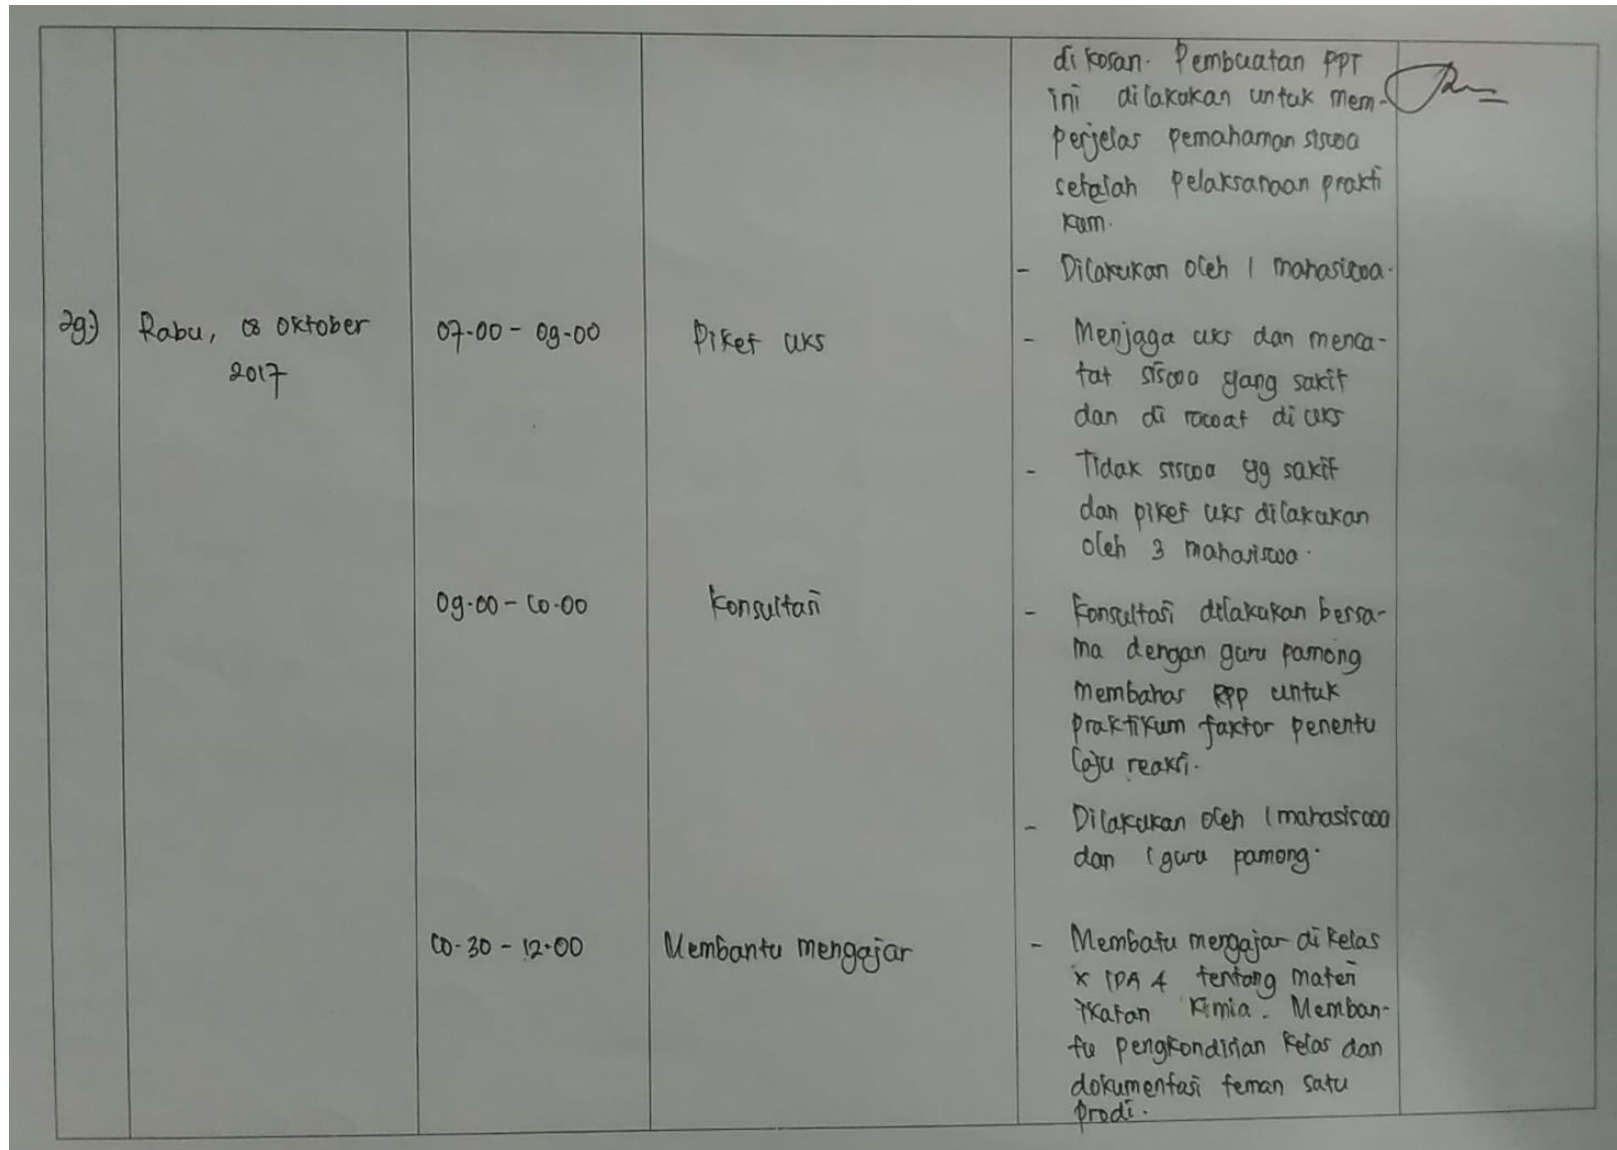 di kosan. Pembuatan PPT
ini dilakukan untuk mem-
perjelas pemahaman siswa
setelah pelaksanaan prakti
kum.
- Dilakukan oleh 1 mahasiswa.
29.) Rabu, 08 Oktober 07.00 - 09.00 Piket UKS - Menjaga uks dan menca-
2017 tat siswa yang sakit
dan di rawat di uks
- Tidak siswa yg sakit
dan piket uks dilakukan
oleh 3 mahasiswa.
09.00 - 10.00 Konsultasi - Konsultasi dilakukan bersa-
ma dengan guru pamong
membahas RPP untuk
praktikum faktor penentu
laju reaksi.
- Dilakukan oleh 1 mahasiswa
dan 1 guru pamong.
10.30 - 12.00 Membantu mengajar - Membatu mengajar di kelas
X IPA 4 tentang materi
ikatan kimia. Memban-
tu pengkondisian kelas dan
dokumentasi teman satu
prodi.